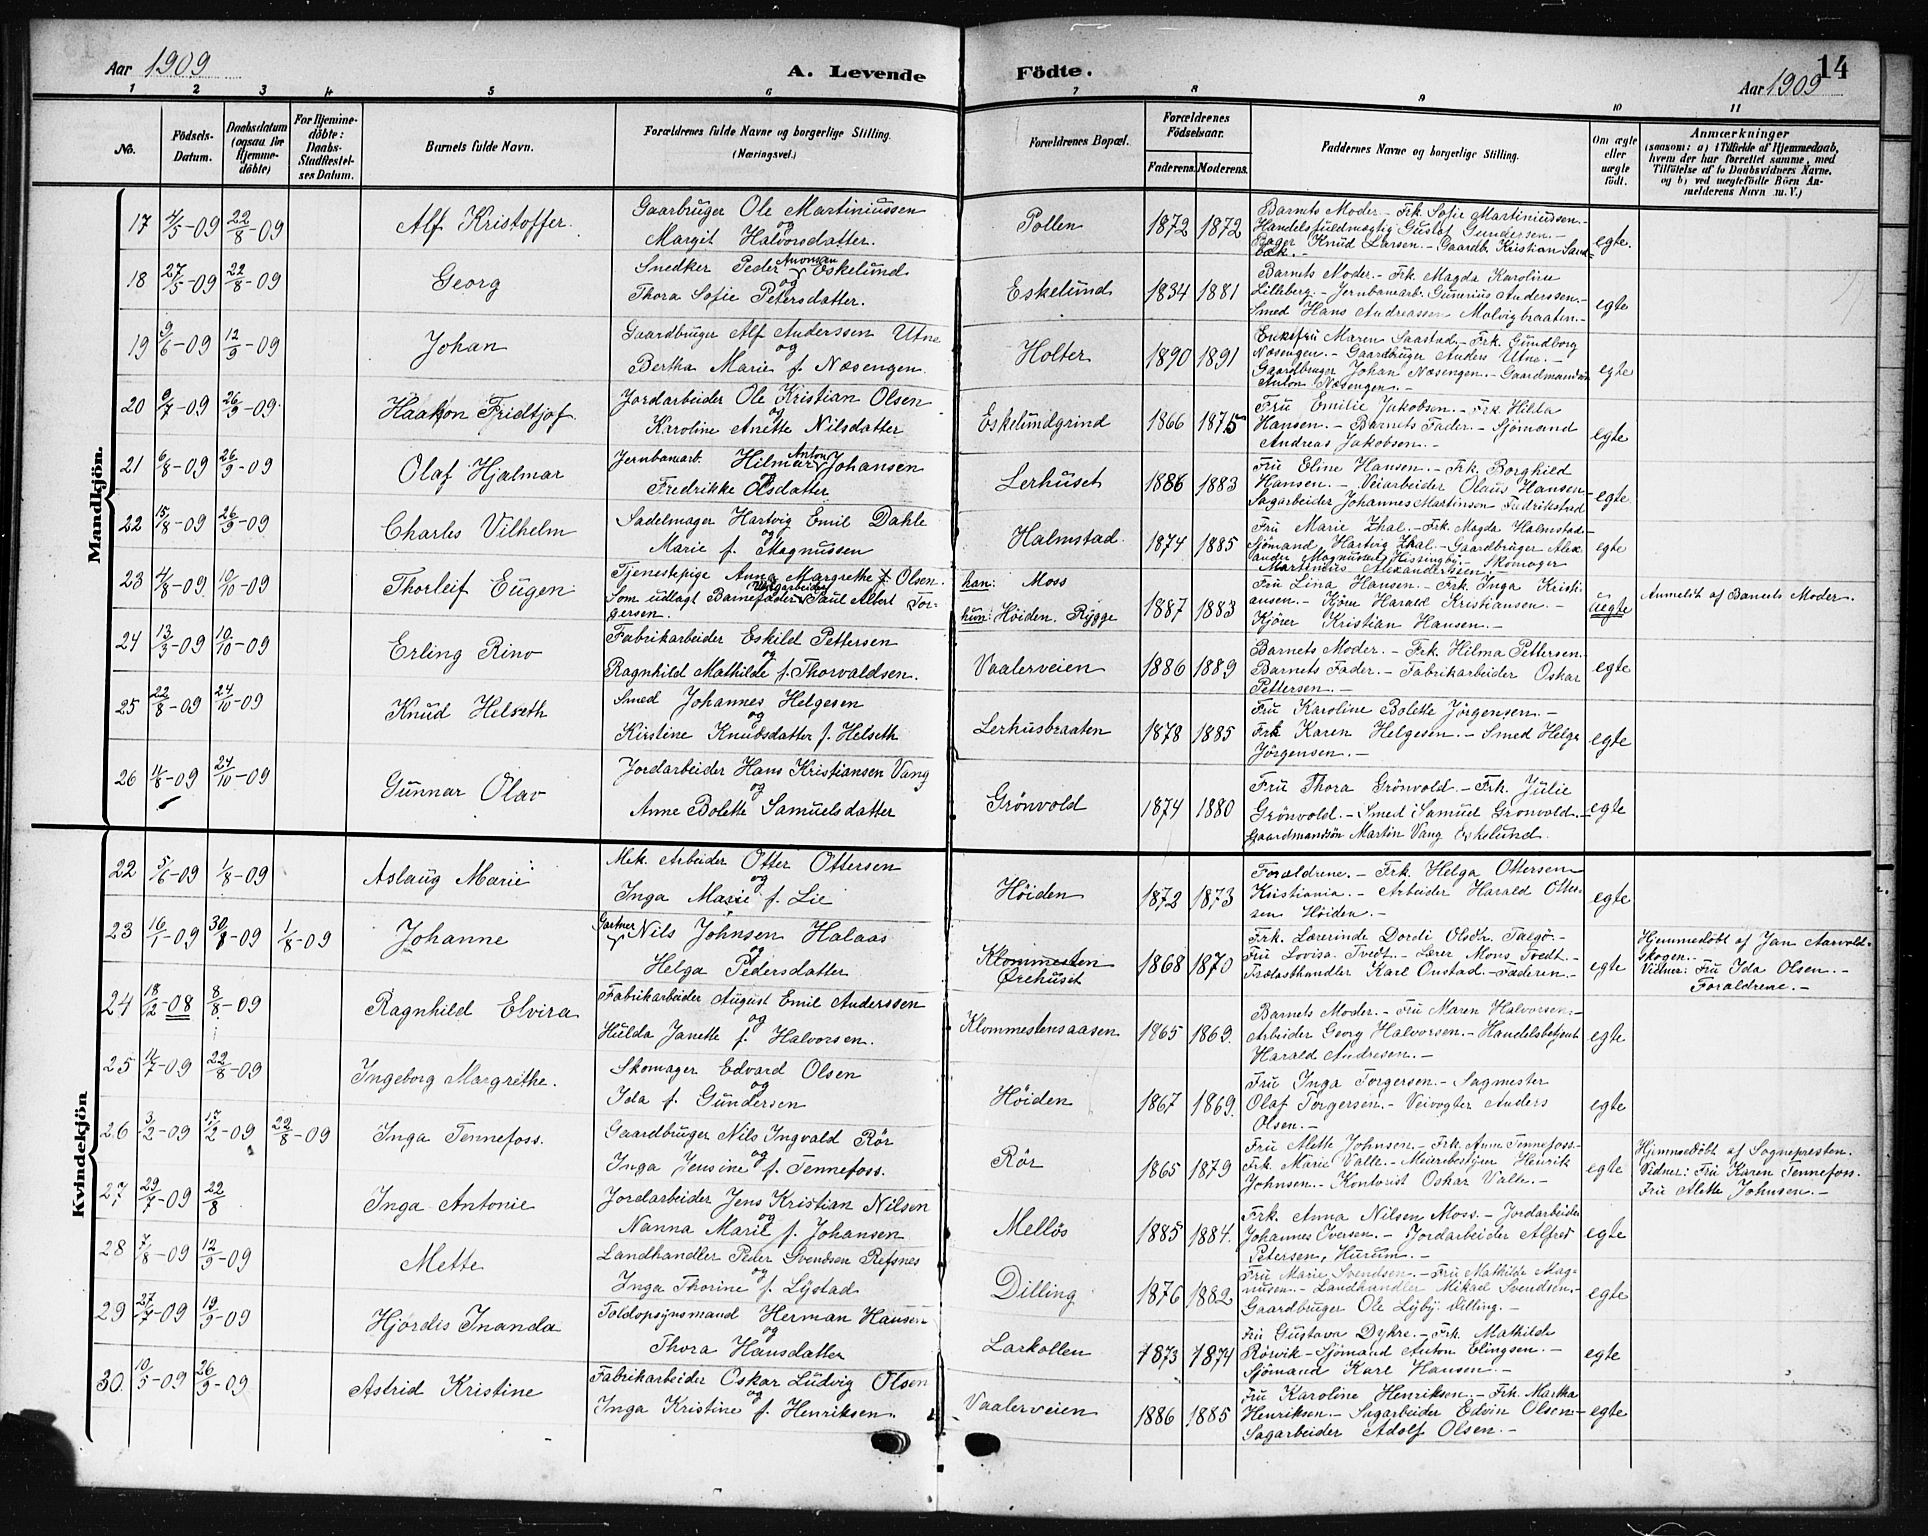 Aar 1909
A. Levende Födte.
Aar 1909
14
1 2 3 4 5 6 7 8 9 10 11
No.
Födsels-Datum.
Daabsdatum (ogsaa for Hjemme-döbte)
For Hjemme-döbte: Daabs-Stadfæstel-ses Datum.
Barnets fulde Navn.
Forældrenes fulde Navne og borgerlige Stilling.
(Næringsvei.)
Forældrenes Bopæl.
Forældrenes Födselsaar.
Faderens. Moderens.
Faddernes Navne og borgerlige Stilling.
Om ægte eller uægte födt.
Anmærkninger
(saasom: a) i Tilfælde af Hjemmedaab,
hvem der har forrettet samme, med
Tilföielse af to Daabsvidners Navne.
og b) ved uægtefödte Börn An-
melderens Navn m. V.)
Mandkjön.
17 4/5-09 22/8-09 Alf Kristoffer. Gaarbruger Ole Martiniussen
og
Margit Halvorsdatter.
Pollen 1872 1872 Barnets Moder - Frk. Sofie Martiniussen.-
Handelsfuldmægtig Gustaf Gundersen.-
Bager Knud Larsen.- Gaardb. Kristian Sand=
bæk.-
egte.
18 27/5-09 22/8-09 Georg Snedker Peder Eskelund
og
Thora Sofie Petersdatter.
Eskelund 1834 1881 Barnets Moder.- Frk. Magda Karoline
Lilleberg.- Jernbanearb. Gunerius Anderssen.-
Smed Hans Andreassen Molvigbraaten.-
egte
19 9/6-09 12/9-09 Johan Gaardbruger Alf Anderssen Utne
og
Bertha Marie f. Næsengen.
Holter 1890 1891 Enkefru Maren Saastad.- Frk. Gundborg
Næsengen.- Gaardbruger Anders Utne.-
Gaardbruger Johan Næsengen.- Gaardmandsön
Anton Næsengen.-
egte
20 9/7-09 26/9-09. Haakon Fridtjof Jordarbeider Ole Kristian Olsen
og
Karoline Anette Nilsdatter
Eskelundgrind 1866 1875 Fru Emilie Jakobsen.- Frk Hilda
Hansen.- Barnets Fader.- Sjömand
Andreas Jakobsen.-
egte
21 6/8-09 26/9-09 Olaf Hjalmar Jernbanarb. Hilmar Anton Johansen
og
Fredrikke Olsdatter
Lerhuset 1886 1883 Fru Eline Hansen.- Frk. Borghild
Hansen.- Veiarbeider Olaus Hansen-
Sagarbeider Johannes Martinsen Fredrikstad
egte
22 15/8-09 26/9-09 Charles Vilhelm Sadelmager Hartvig Emil Dahle
og
Marie f. Magnussen
Halmstad. 1874 1885 Fru Marie Dhal.- Frk. Magda Halmstad-
Sjömand Hartvig Dhal.- Gaardbruger Alex=
ander Magnussen Skomager
Martinius Alexanderssen.
egte
23 4/8-09. 10/10-09 Thorleif Eugen Tjenestepige Anna Margrethe f. Olsen.
Som udlagt Barnefader Paul Albert Tor-
gersen.
han: Moss
hun: Höiden. Rygge
1887 1883 Fru Lina Hansen.- Frk. Inga Kristi-
ansen.- Kjörer Harald Kristiansen.-
Kjörer Kristian Hansen.-
uegte Anmeldt af Barnets Moder.
24 13/3-09 10/10-09 Erling Rino Fabrikarbeider Eskild Pettersen
og
Ragnhild Mathilde f. Thorvaldsen.
Vaalerveien 1886 1889 Barnets Moder.- Frk. Hilma Pettersen.
Barnets Fader.- Fabrikarbeider Oskar
Pettersen.-
egte
25 22/8-09 24/10-09 Knud Helseth Smed Johannes Helgesen
og
Kirstine Knudsdatter f. Helseth
Lerhusbraaten 1878 1885 Fru Karoline Bolette Jörgensen.-
Frk Karen Helgesen.- Smed Helge
Jörgensen.-
egte
26 4/8-09 24/10-09 Gunnar Olav Jordarbeider Hans Kristiansen Vang
og
Anne Bolette Samuelsdatter
Grönvold 1874 1880 Fru Thora Grönvold.- Frk. Julie
Grönvold.- Smed Samuel Gronvold.-
Gaardmandsön Martin Vang Eskelund.
egte
Kvindekjön
22 5/6-09 1/8-09 Aslaug Marie Mek. Arbeider Otter Ottersen
og
Inga Marie f. Lie
Höiden 1872 1873 Forældrene.- Frk. Helga Ottersen
Kristiania.- Arbeider Harald Otter-
sen Höiden.-
egte
23 16/1-09 30/8-09 1/8-09 Johanne Gartner Nils Johnsen Halaas
og
Helga Pedersdatter
Klommesten
Ørehuset
1868 1870 Frk. Lærerinde Dordi Olsdtr.
Fru Lovisa Tvedt.- Lærer Mons Tvedt.-
Trælasthandler Karl Onstad.-Faderen.-
egte Hjemmedöbt af Jan Aarvold-
skogen.
Vidner: Fru Ida Olsen.-
Forældrene.-
24 18/12-08 8/8-09 Ragnhild Elvira Fabrikarbeider August Emil Anderssen
og
Hulda Janette f. Halvorsen.
Klommestensaasen 1865 1869. Barnets Moder.- Fru Maren Halvorsen.-
Arbeider Georg Halvorsen.- Handelsbetjent
Harald Andresen.-
egte
25 4/7-09 22/8-09 Ingeborg Margrethe. Skomager Edvard Olsen
og
Ida f. Gundersen
Höiden 1867 1869. Fru Inga Torgersen.- Sagmester
Olaf Torgersen.- Veivogter Anders
Olsen.-
egte
26 3/2-09 17/2-09 22/8-09 Inga Tennefoss. Gaardbruger Nils Ingvald Rör
og
Inga Jensine f. Tennefoss.
Rör 1865 1879 Fru Mette Johnsen.- Frk. Anne Tennefoss.-
Frk. Marie Valle.- Meieribestyrer Henrik
Johnsen.- Kontorist Oskar Valle.-
egte Hjemmedöbt af Sognepresten.
Vidner: Fru Karen Tennefoss.
Fru Mette Johnsen.-
27 29/7-09 22/8 Inga Antonie Jordarbeider Jens Kristian Nilsen
og
Nanna Marie f. Johansen
Mellös 1885 1884. Frk. Anna Nilsen Moss.- Jordarbeider
Johannes Iversen.- Jordarbeider Alfred
Petersen, Hurum.-
egte
28 7/8-09 12/9-09 Mette Landhandler Peder Svendsen Refsnes
og
Inga Thorine f. Lystad
Dilling 1876 1882 Fru Marie Svendsen.- Fru Mathilde Mag-
nusen.- Landhandler Mikael Svendsen.-
Gaardbruger Ole Lyby. Dilling.-
egte
29 27/7-09 19/9-09 Hjördis Inanda Toldopsynsmand Herman Hansen
og
Thora Hansdatter
Larkollen 1873 1874 Fru Gustava Dykre.- Frk. Mathilde
Rörvik.- Sjömand Anton Elingsen.-
Sjömand Karl Hansen.-
egte
30. 10/5-09 26/9-09 Astrid Kristine Fabrikarbeider Oskar Ludvig Olsen
og
Inga Kristine f. Henriksen.
Vaalerveien 1886 1885 Fru Karoline Henriksen.- Frk. Martha
Henriksen.- Sagarbeider Edvin Olsen.-
Sagarbeider Adolf Olsen.-
egte